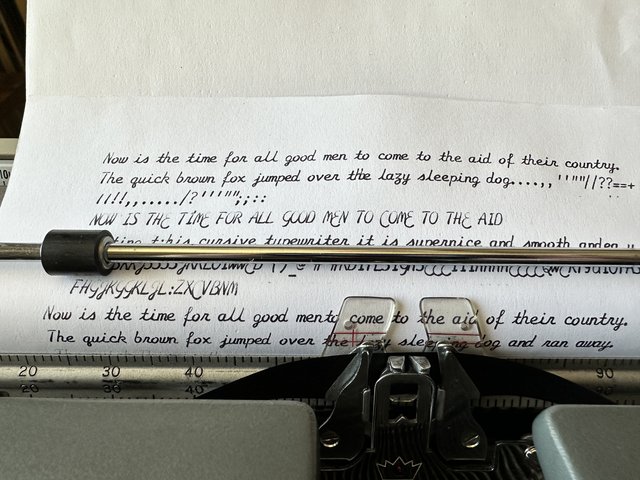 Now is the time for all good men to come to the aid of their country.
The quick brown fox jumped over the lazy sleeping dog....,, ''""//??==+
//!!,,...../?''''"";;::
NOW IS THE TIME FOR ALL GOOD MEN TO COME TO THE AID
this cursive typewriter it is supernice and smooth
FHGJKGGKLJL:ZXCVBNM
Now is the time for all good mento come to the aid of their country.
The quick brown fox jumped over the lazy sleeping dog and ran away.
20 30 40 90
20 30 40 90